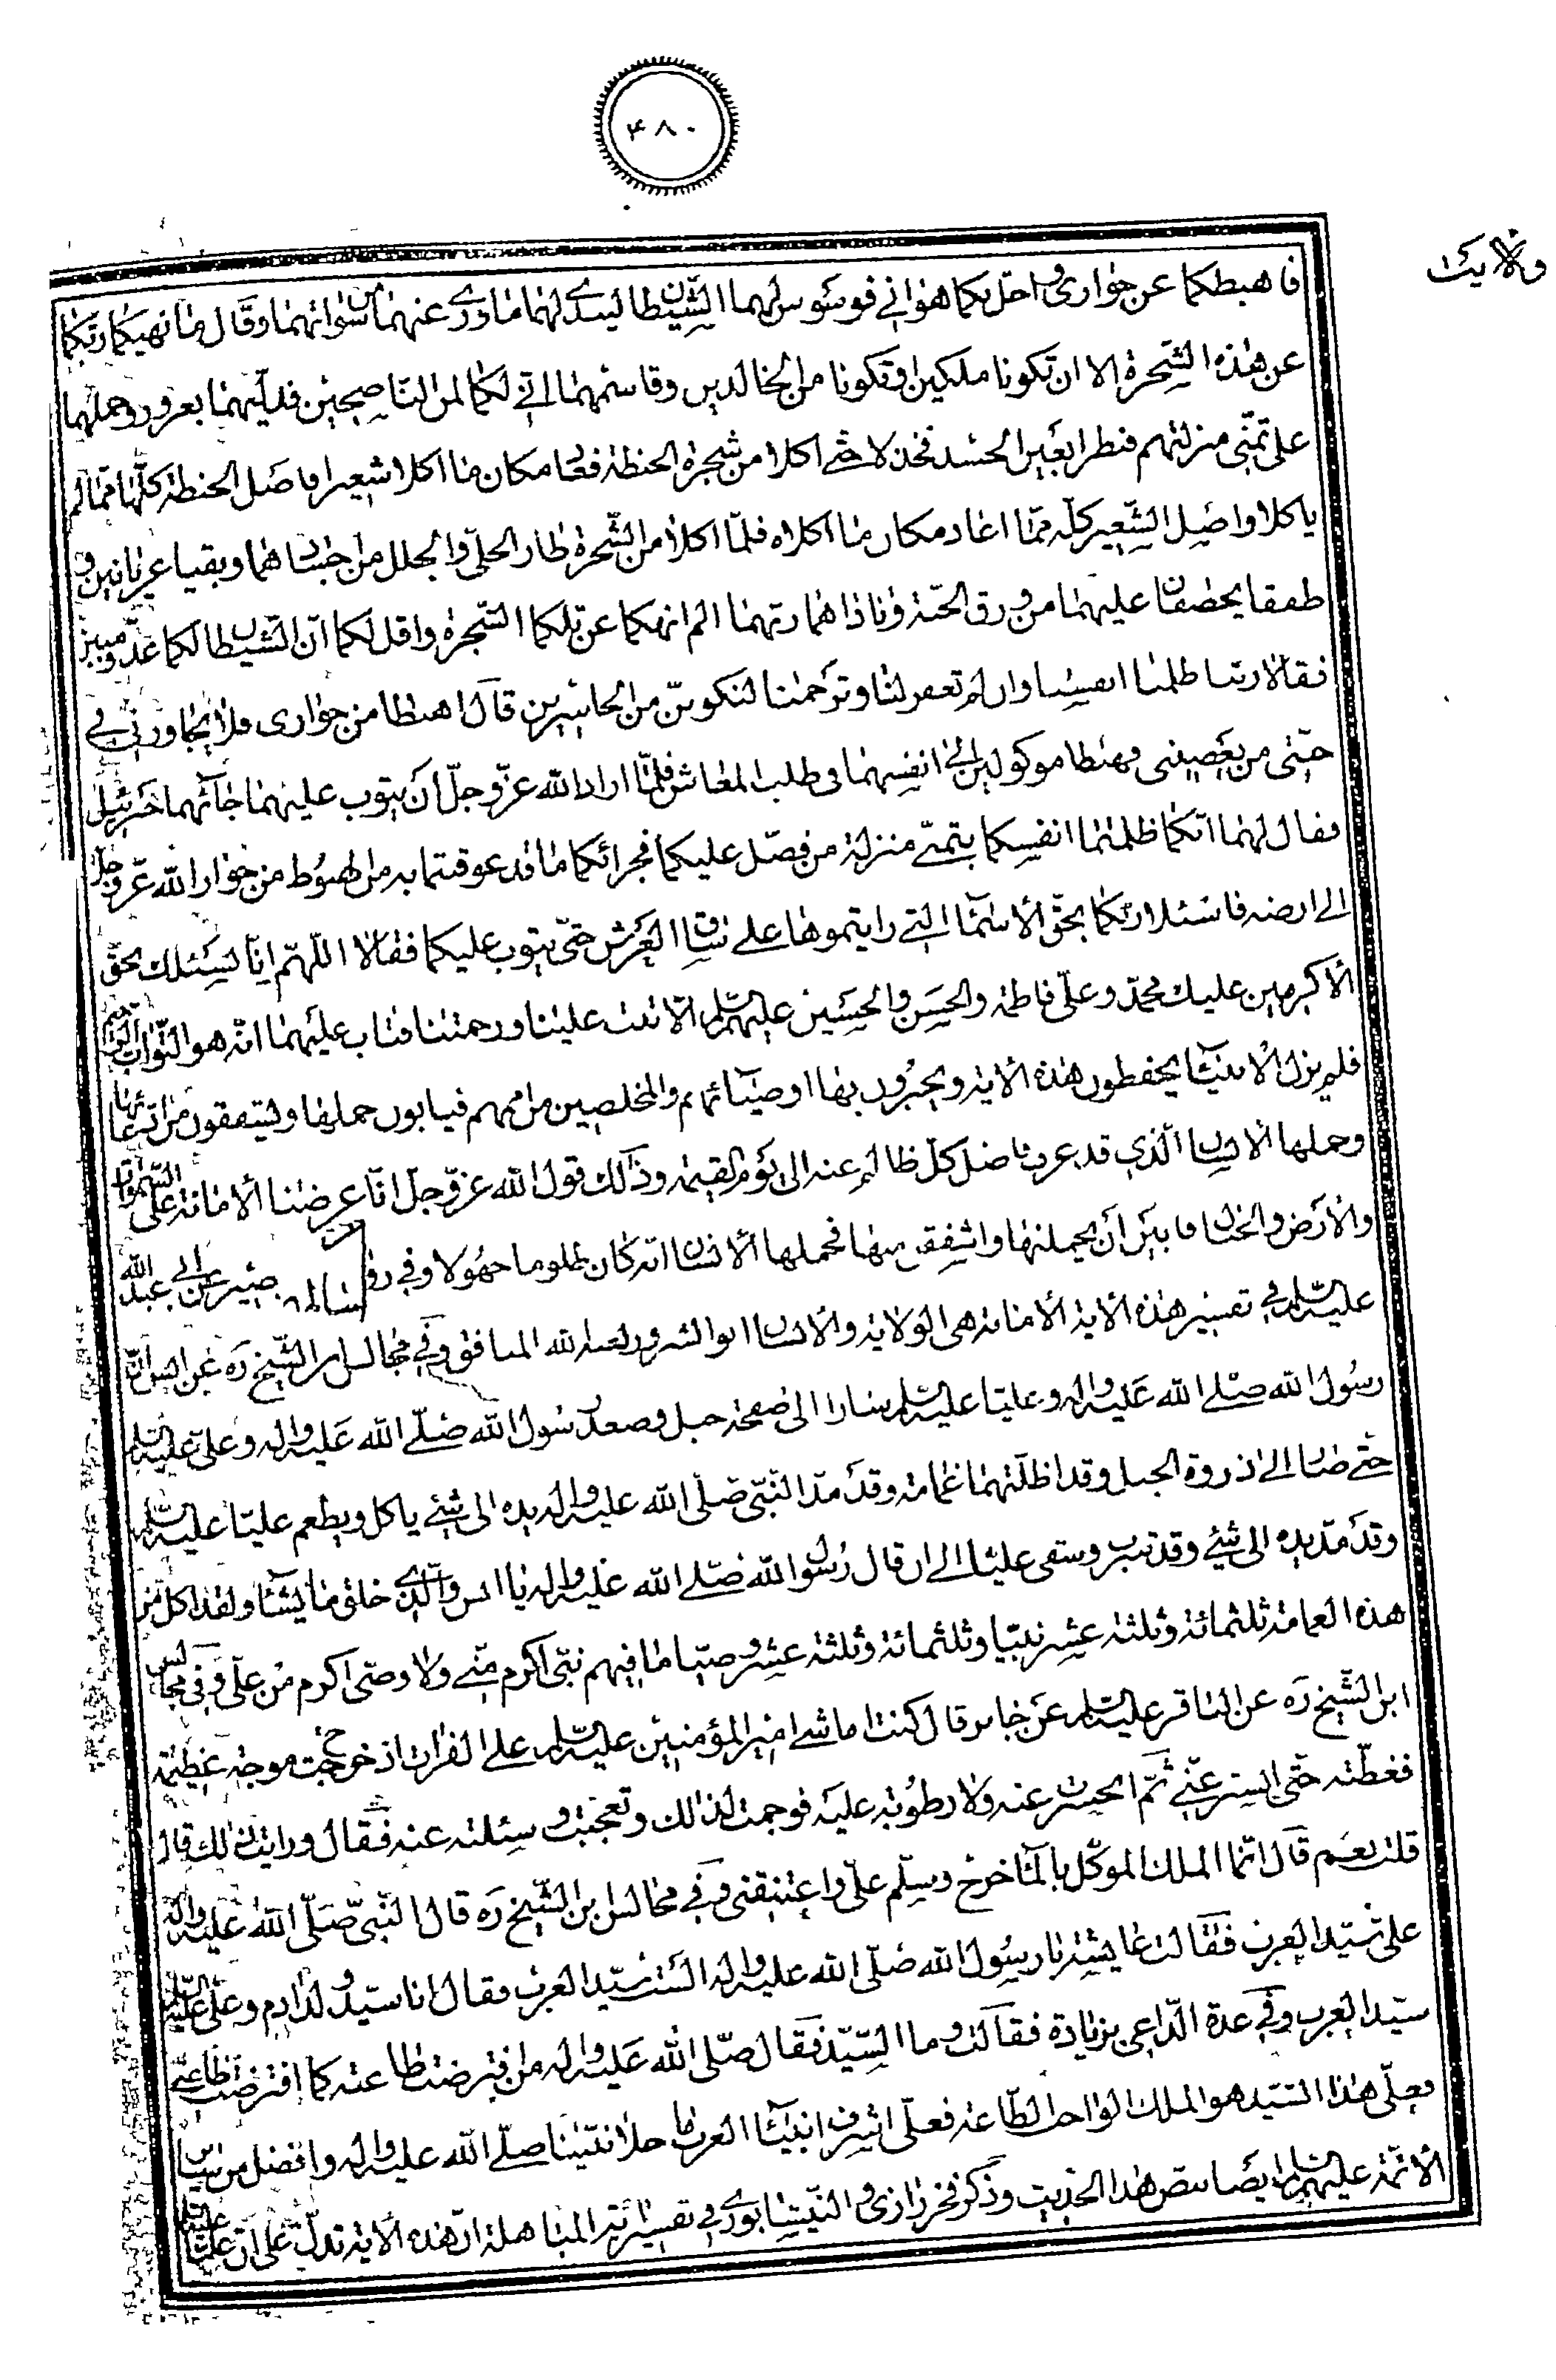 ۴۸۰
ولایت
فاهبطکما عن جواری و احل بکما هوانی فوسوس لهما الشیطان لیبدی لهما ماوری عنهما من سواتهما وقال مانهیکما ربکما
عن هذه الشجرة الا ان تکونا ملکین او تکونا من الخالدین وقاسمهما انی لکما لمن الناصحین فدلیهما بغرور وحملهما
علی تمنی منزلتهم فنظرا بعین الحسد فخذلا حتی اکلا من شجرة الحنطة فعاد مکان ما اکلا شعیرا فاصل الحنطة کلها مما لم
یاکلا واصل الشعیر کله مما اعاد مکان ما اکلاه فلما اکلا من الشجرة طار الحلی والحلل من اجسادهما وبقیا عریانین و
طفقا یخصفان علیهما من ورق الجنة وناداهما ربهما الم انهکما عن تلکما الشجرة واقل لکما ان الشیطان لکما عدو مبین
فقالا ربنا ظلمنا انفسنا وان لم تغفر لنا وترحمنا لنکونن من الخاسرین قال اهبطا من جواری فلا یجاورنی فی
جنتی من یعصینی فهبطا موکولین الی انفسهما فی طلب المعاش فلما اراد الله عز وجل ان یتوب علیهما جائهما جبرئیل
فقال لهما انکما ظلمتما انفسکما بتمنی منزلة من فضل علیکما فجزائکما ما قد عوقبتما به من الهبوط من جوار الله عز وجل
الی ارضه فاسئلا ربکما بحق الاسماء التی رایتموها علی ساق العرش حتی یتوب علیکما فقالا اللهم انا نسئلک بحق
الاکرمین علیک محمد وعلی فاطمة والحسن والحسین علیهم السلم الا تبت علینا ورحمتنا فتاب علیهما انه هو التواب الرحیم
فلم یزل الانبیاء یحفظون هذه الامانة ویخبرون بها اوصیائهم والمخلصین من اممهم فیابون حملها ویشفقون من ادعائها
وحملها الانسان الذی قد عرف فاصل کل ظالم عنه الی یوم القیمة وذلک قول الله عز وجل انا عرضنا الامانة علی السموات
والارض والجبال فابین ان یحملنها واشفقن منها فحملها الانسان انه کان ظلوما جهولا وفی عن ابی عبد الله
علیه السلم فی تفسیر هذه الایة الامانة هی الولایة والانسان ابو الشرور المنافق وفی مجالس ابن الشیخ ره عن انس ان
رسول الله صلی الله علیه واله وعلیا علیه السلم سارا الی صفحة جبل وصعد رسول الله صلی الله علیه واله وعلی علیه السلم
حتی صارا الی ذروة الجبل وقد اظلتهما غمامة وقد مد النبی صلی الله علیه واله یده الی شئ یاکل ویطعم علیا علیه السلم
وقد مد یده الی شئ وقد شرب وسقی علیا الی ان قال رسول الله صلی الله علیه واله یا انس والذی خلق ما یشاء ولقد اکل من
هذه الغمامة ثلثمائة وثلثة عشر نبیا وثلثمائة وثلثة عشر وصیا ما فیهم نبی اکرم منی ولا وصی اکرم من علی وفی مجالس
ابن الشیخ ره عن الباقر علیه السلم عن جابر قال کنت اماشی امیر المؤمنین علیه السلم علی الفرات اذ خرجت موجة عظیمة
فغطته حتی استتر عنی ثم انحسرت عنه ولا رطوبة علیه فوجمت لذلک وتعجبت و سئلته عنه فقال ورایت ذلک قال
قلت نعم قال انما الملک الموکل بالماء خرج وسلم علی واعتنقنی وفی مجالس ابن الشیخ ره قال النبی صلی الله علیه واله
علی سید العرب فقالت عایشه یا رسول الله صلی الله علیه واله الست سید العرب فقال انا سید ولد ادم وعلی علیه السلم
سید العرب وفی عدة الداعی بزیادة فقالت وما السید فقال صلی الله علیه واله من افترضت طاعته کما افترضت طاعتی
فعلی هذا السید هو الملک الواجب الطاعة فعلی اشرف انبیاء العرب ما خلا نبینا صلی الله علیه واله وافضل من سایر
الائمة علیهم السلم ایضا بنص هذا الحدیث وذکر فخر رازی والنیشابوری فی تفسیر ایة المباهلة ان هذه الایة تدل علی ان علیا علیه السلم